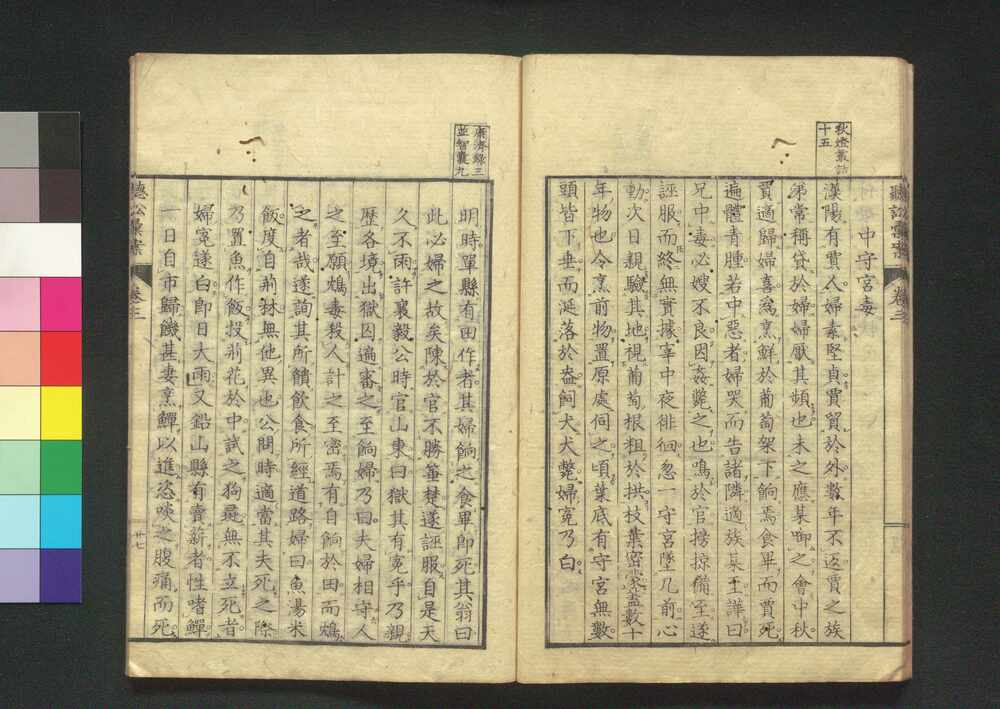 聽訟彙案 卷三
中守宮毒
秋燈叢話
十五
漢陽有賈人婦素堅貞賈貿於外數年不返賈之族
弟常稱貸於婦婦厭其頻也未之應某啣之會中秋
賈適歸婦喜爲烹鮮於葡萄架下餉焉食畢而賈死
遍體青腫若中惡者婦哭而告諸隣適族某王譁曰
兄中毒必嫂不良因姦斃之也鳴於官搒掠備至遂
誣服而終無實據宰中夜徘徊忽一守宮墜几前心
動次日親驗其地視葡萄根粗於拱枝葉密蒙盖數十
年物也令烹前物置原處伺之頃葉底有守宮無數
頭皆下垂而涎落於盎飼犬犬斃婦寃乃白
康濟錄三
並智囊九
明時單縣有田作者其婦餉之食畢即死其翁曰
此必婦之故矣陳於官不勝箠楚遂誣服自是天
久不雨許襄毅公時官山東曰獄其有寃乎乃親
歷各境出獄囚遍審之至餉婦乃曰夫婦相守人
之至願鴆毒殺人計之至密焉有自餉於田而鴆
之者哉遂詢其所饋飲食所經道路婦曰魚湯米
飯度自荊林無他異也公問時適當其夫死之際
乃置魚作飯投荊花於中試之狗彘無不立死者
婦寃遂白即日大雨又鉛山縣有賣薪者性嗜鱓
一日自市歸饑甚妻烹鱓以進恣啖之腹痛而死
聽訟彙案 卷三
廿七